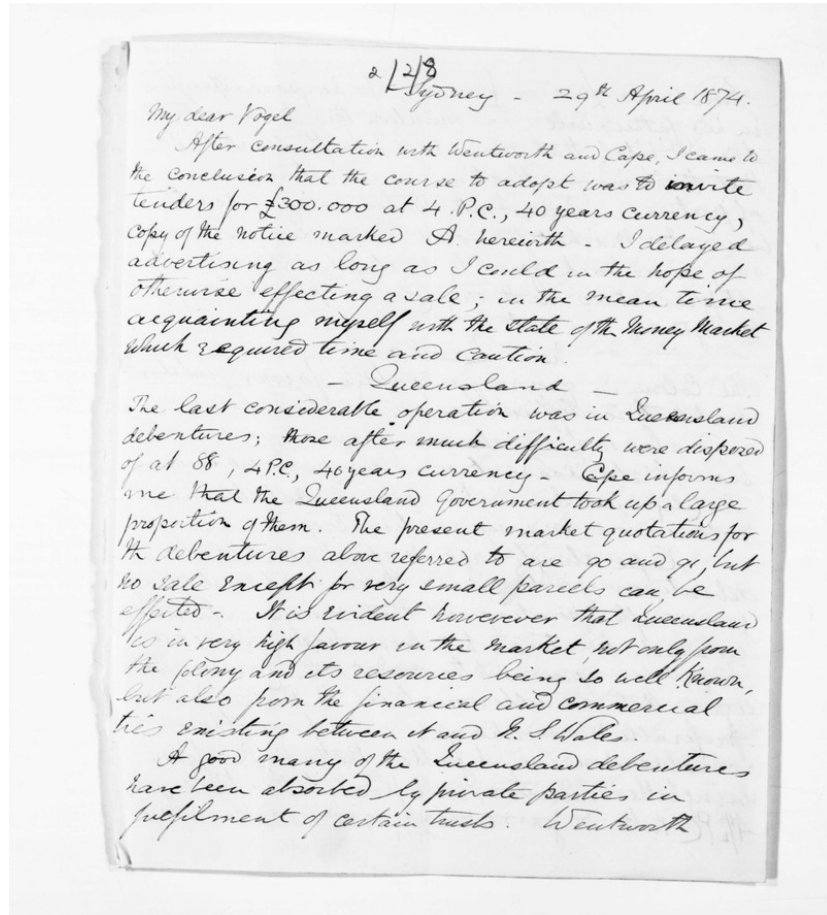 2/2/8
Sydney - 29th April 1874.
My dear Vogel
After consultation with Wentworth and Cape, I came to
the conclusion that the course to adopt was to invite
tenders for £300.000 at 4. P.C., 40 years currency,
copy of the notice marked A. herewith - I delayed
advertising as long as I could in the hope of
otherwise effecting a sale; in the mean time
acquainting myself with the state of the Money Market
which required time and caution.
- Queensland -
The last considerable operation was in Queensland
debentures; those after much difficulty were disposed
of at 88, 4 P.C., 40 years currency - Cape informs
me that the Queensland Government took up a large
proportion of them. The present market quotations for
the debentures above referred to are 90 and 91, but
no sale except for very small parcels can be
effected - It is evident howerever that Queensland
is in very high favour in the market, not only from
the Colony and its resources being so well known,
but also from the financial and commercial
ties existing between it and N. S. Wales.
A good many of the Queensland debentures
have been absorbed by private parties in
fulfilment of certain trusts. Wentworth